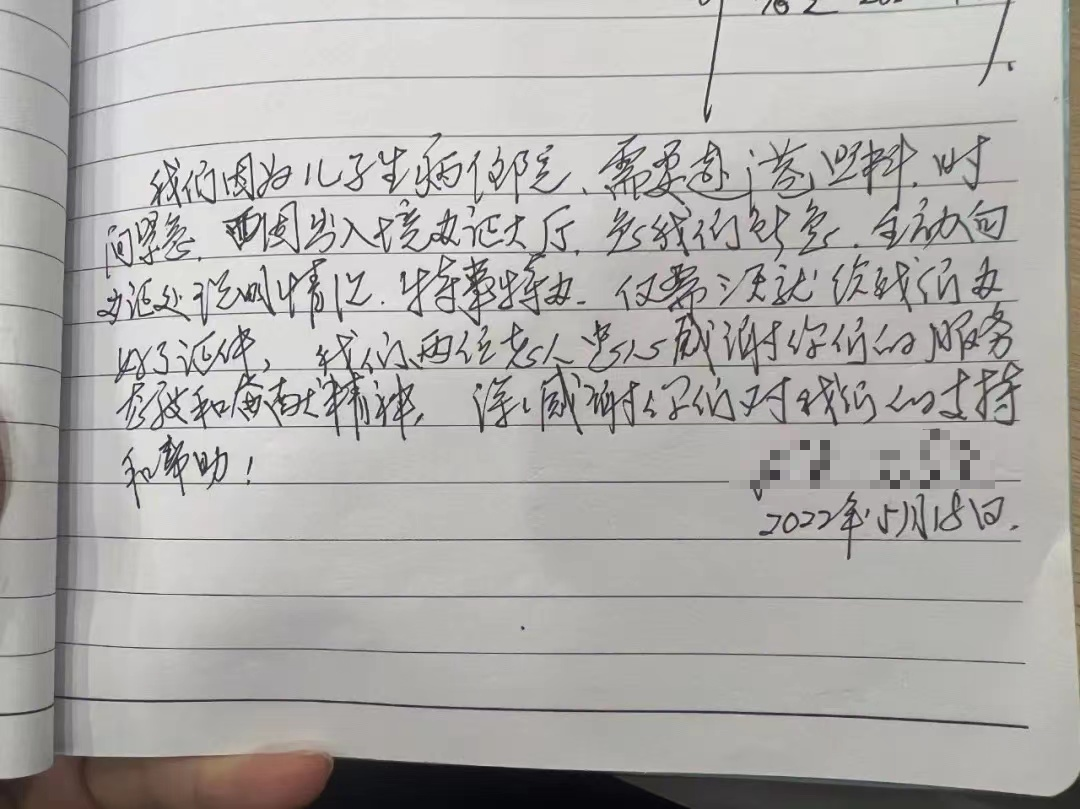 我们因为儿子生病住院、需要赴港照料. 时
间紧急. 出入境办证大厅. 急我们所急. 主动向
办证处说明情况. 特事特办. 仅需三天就给我们办
好了证件, 我们两位老人忠心感谢你们的服务
和奉献精神, 深深感谢你们对我们的支持
和帮助!
2022年5月18日.